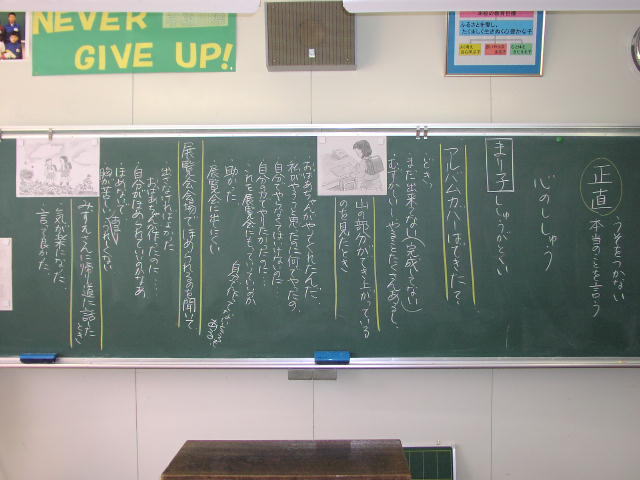 NEVER
GIVE UP!
学校の教育目標
ふるさとを愛し、
たくましく生きぬく心豊かな子
正直
うそをつかない
本当のことを言う
心のししゅう
まり子
ししゅうがとくい
アルバムカバーはできた?
どきっ
まだ出来てない(完成してない)
むずかしい やることたくさんあるし、
山の部分ができ上がっている
のを見たとき
おばあちゃんがやってくれたんだ。
私がやろうと思ったのに何でやったの。
自分でやらなくてはいけないのに…
自分の力でやりたかったのに…
これを展覧会にもっていいのか
助かった
展覧会に出しにくい
展覧会会場でほめられるのを聞いて
出さなければよかった
おばあちゃんが作ったのに…
自分がほめられていいのかなあ
ほめないで
胸が苦しい、うれしくない
みすえさんに帰り道に話した
とき
・気が楽になった。
・言って良かった。